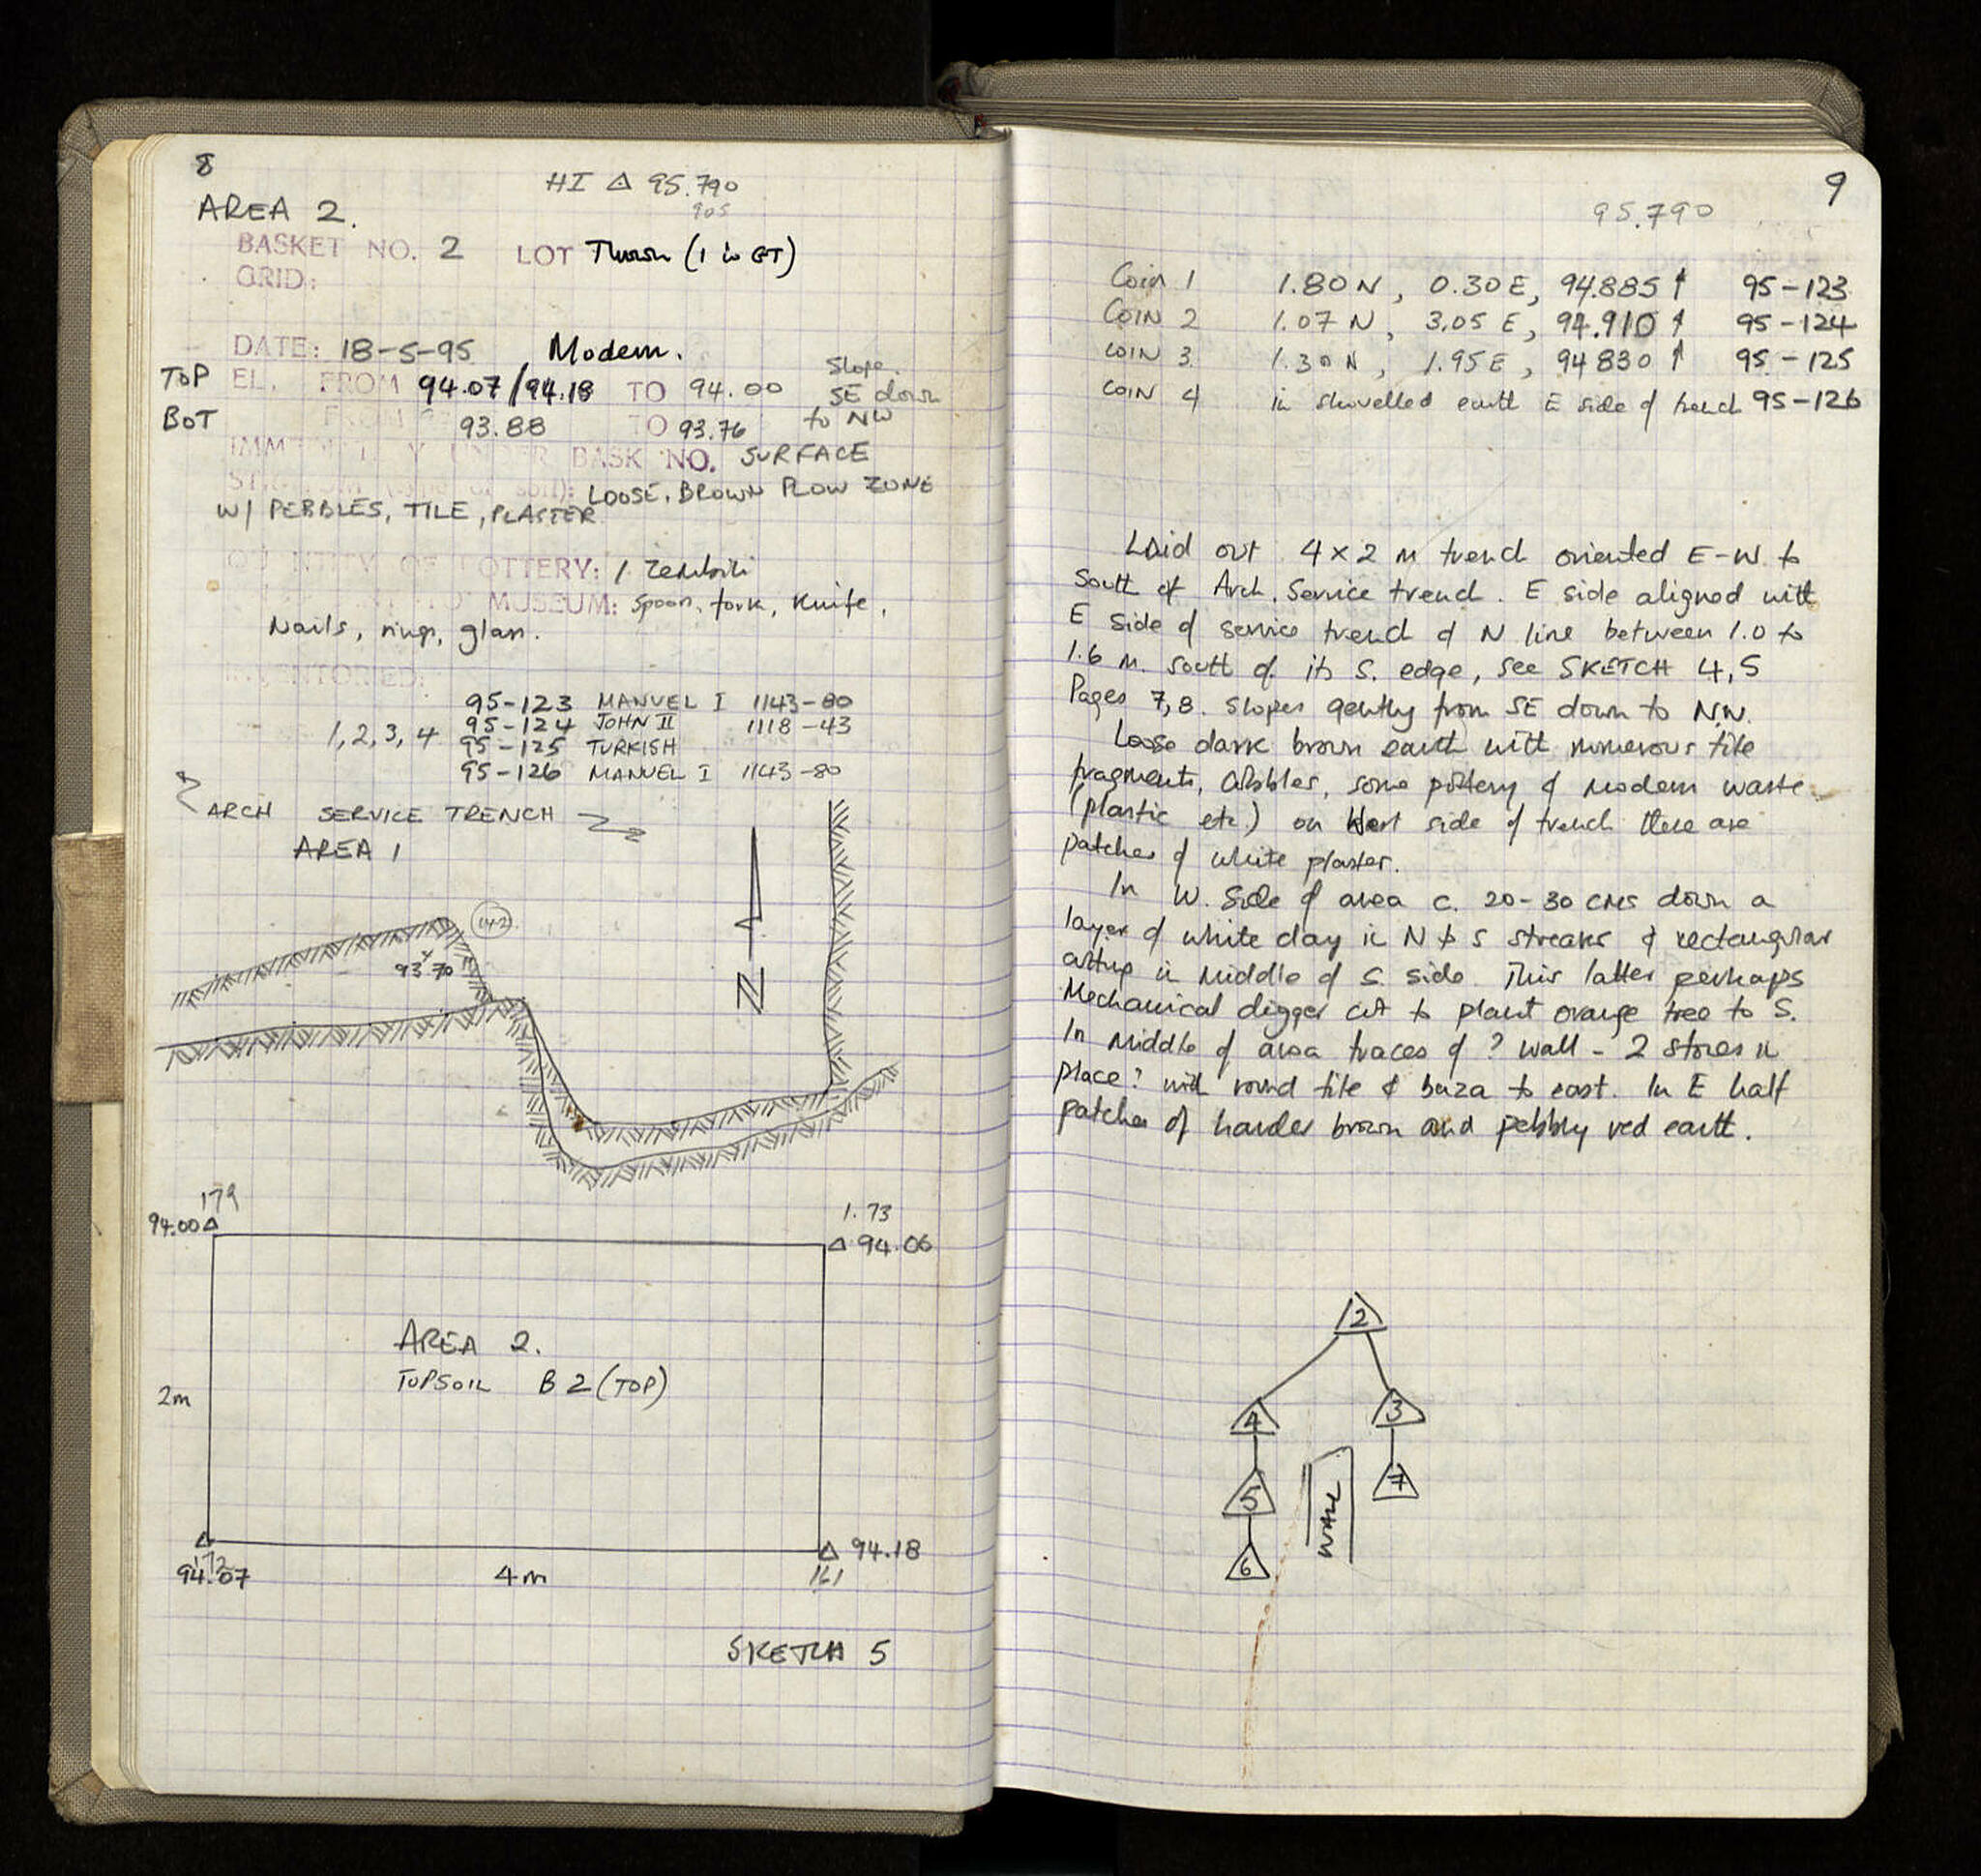 8
HI △ 95.790
905
AREA 2.
BASKET NO. 2 LOT Thrown (1 in GT)
GRID:
DATE: 18-5-95 Modern.
TOP EL. FROM 94.07/94.18 TO 94.00
Slope
SE down
to NW
BOT FROM 93.88 TO 93.76
IMMEDIATELY UNDER BASK NO. SURFACE
LOOSE, BROWN PLOW ZONE
W/ PEBBLES, TILE, PLASTER
QUANTITY OF POTTERY: 1 zembili
MUSEUM: Spoon, fork, Knife,
Nails, rings, glass.
INVENTORIED:
1, 2, 3, 4
95-123 MANUEL I 1143-80
95-124 JOHN II 1118-43
95-125 TURKISH
95-126 MANUEL I 1143-80
ARCH SERVICE TRENCH
AREA 1
142
93.70
N
179
94.00 △
1.73
△ 94.06
AREA 2.
TOPSOIL B2 (TOP)
2m
172
94.07
4m
△ 94.18
161
SKETCH 5
9
95.790
Coin 1 1.80 N, 0.30 E, 94.885 ↑ 95-123
COIN 2 1.07 N, 3.05 E, 94.910 ↑ 95-124
COIN 3. 1.30 N, 1.95 E, 94 830 ↑ 95-125
COIN 4 in shovelled earth E side of trench 95-126
Laid out 4 x 2 m trench oriented E-W to
South of Arch. Service trench. E side aligned with
E side of service trench & N line between 1.0 to
1.6 m. south of its S. edge, see SKETCH 4, 5
Pages 7, 8. Slopes gently from SE down to N.W.
Loose dark brown earth with numerous tile
fragments, cobbles, some pottery & modern waste
(plastic etc.) on West side of trench there are
patches of white plaster.
In W. Side of area c. 20-30 cms down a
layer of white clay in N to S streaks & rectangular
in middle of S. side. This latter perhaps
Mechanical digger cut to plant orange tree to S.
In middle of area traces of ? wall - 2 stones in
place? with round tile & to east. In E half
patches of harder brown and pebbly red earth.
2
4 3
5 WALL 7
6